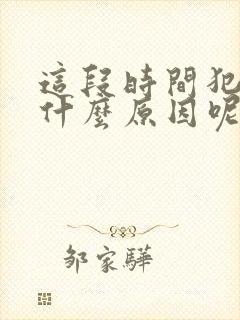 這段時間犯
什麼原因呢
邹家驊